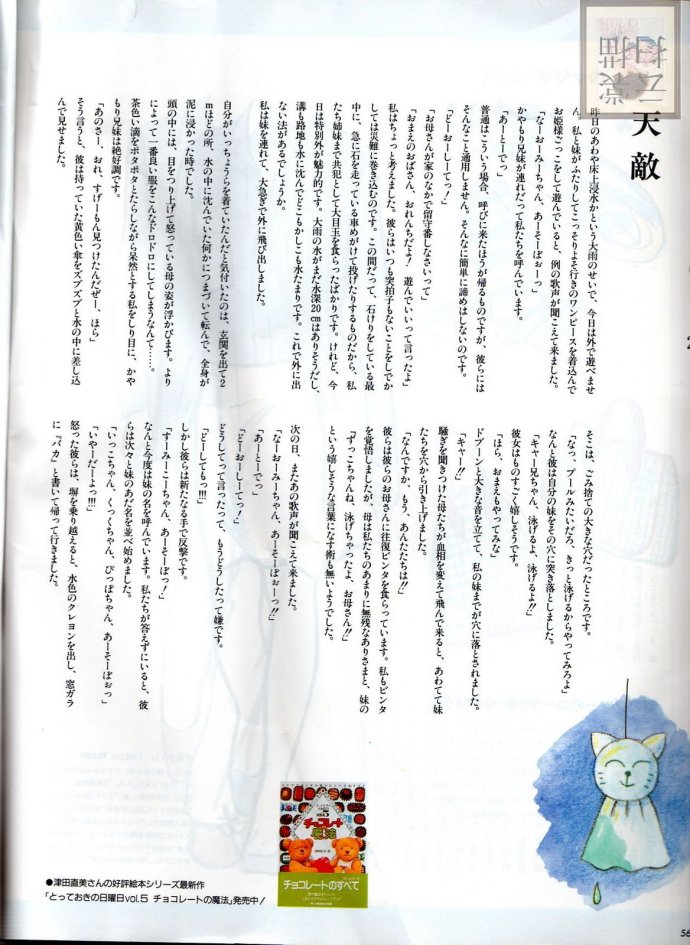 天敵
昨日のあわや床上浸水かという大雨のせいで、今日は外で遊べませ
ん。私と妹がふたりしてこっそりよそ行きのワンピースを着込んで
お姫様ごっこをして遊んでいると、例の歌声が聞こえて来ました。
「なーおーみーちゃん、あーそーぼぉーっ」
かやもり兄妹が連れだって私たちを呼んでいます。
「あーとーでっ」
普通はこういう場合、呼びに来たほうが帰るものですが、彼らには
そんなこと通用しません。そんなに簡単に諦めはしないのです。
「どーおーしーてっ!」
「お母さんが家のなかで留守番しなさいって」
「おまえのおばさん、おれんちだよ! 遊んでいいって言ったよ」
私はちょっと考えました。彼らはいつも突拍子もないことをしでか
しては災難に巻き込むのです。この間だって、石けりをしている最
中に、急に石を走っている車めがけて投げたりするものだから、私
たち姉妹まで共犯として大目玉を食らったばかりです。けれど、今
日は特別外が魅力的です。大雨の水がまだ水深20cmはありそうだし、
溝も路地も水に沈んでどこもかしこも水たまりです。これで外に出
ない法があるでしょうか。
私は妹を連れて、大急ぎで外に飛び出しました。
自分がいっちょうらを着ていたんだと気付いたのは、玄関を出て2
mほどの所、水の中に沈んでいた何かにつまづいて転んで、全身が
泥に浸かった時でした。
頭の中には、目をつり上げて怒っている母の姿が浮かびます。より
によって一番良い服をこんなドロドロにしてしまうなんて……。
茶色い滴をポタポタとたらしながら呆然とする私をしり目に、かや
もり兄妹は絶好調です。
「あのさー、おれ、すげーもん見つけたんだぜー、ほら」
そう言うと、彼は持っていた黄色い傘をズブズブと水の中に差し込
んで見せました。
そこは、ごみ捨ての大きな穴だったところです。
「なっ、プールみたいだろ、きっと泳げるからやってみろよ」
なんと彼は自分の妹をその穴に突き落としました。
「キャー兄ちゃん、泳げるよ、泳げるよ!!」
彼女もものすごく嬉しそうです。
「ほら、おまえもやってみな」
ドブーンと大きな音を立てて、私の妹までが穴に落とされました。
「キャー!!」
騒ぎを聞きつけた母たちが血相を変えて飛んで来ると、あわてて妹
たちを穴から引き上げました。
「なんですか、もう、あんたたちは!!」
彼らは彼らのお母さんに往復ビンタを食らっています。私もビンタ
を覚悟しましたが、母は私たちのあまりに無残なありさまと、妹の
「ずっこちゃんね、泳げちゃったよ、お母さん!!」
という嬉しそうな言葉になす術も無いようでした。
次の日、またあの歌声が聞こえて来ました。
「なーおーみーちゃん、あーそーぼぉーっ!!」
「あーとーでっ」
「どーおーしーてっ!」
どうしてって言ったって、もうどうしたって嫌です。
「どーしてもっ!!!」
しかし彼らは新たなる手で反撃です。
「すーみーこーちゃん、あーそーぼっ!」
なんと今度は妹の名を呼んでいます。私たちが答えずにいると、彼
らは次々と妹のあだ名を並べ始めました。
「いっこちゃん、くっくちゃん、ぴっぽちゃん、あーそーぼぉっ」
「いやーだーよっ!!!」
怒った彼らは、塀を乗り越えると、水色のクレヨンを出し、窓ガラ
に『バカ』と書いて帰って行きました。
チョコレート
魔法
チョコレートのすべて
●津田直美さんの好評絵本シリーズ最新作
「とっておきの日曜日vol.5 チョコレートの魔法」発売中!
56